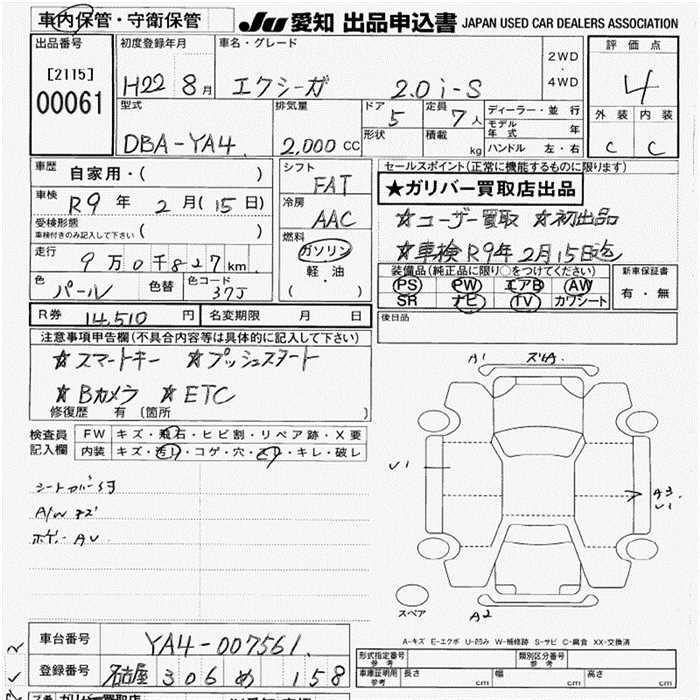 車内保管・守衛保管
JU 愛知 出品申込書 JAPAN USED CAR DEALERS ASSOCIATION
出品番号 初度登録年月 車名・グレード 評価点
[2115]
00061
H22 8月 エクシーガ 2.0i-S 2WD・4WD 4
型式 排気量 ドア 定員 ディーラー・並行 外装 内装
DBA-YA4. 2,000 CC 5 7人
モデル年式 年
形状 積載 kg ハンドル 左・右 C C
車歴 自家用・( )
車検 R9年 2月(15日)
受検形態
車検付きのみ記入して下さい ( )
走行 9万0千827km
色 パール 色替 色コード 37J
シフト FAT
冷房 AAC
燃料 ガソリン
軽・油
( )
セールスポイント(正常に機能するものに限ります)
★ガリバー買取店出品
☆ユーザー買取 ☆初出品
☆車検R9年2月15日迄
装備品(純正品に限り○をつけてください) 新車保証書
PS PW エアB AW 有・無
SR ナビ TV カワシート
後日品
R券 14,510円 名変期限 月 日
注意事項申告欄(不具合内容等は具体的に記入して下さい)
☆スマートキー ☆プッシュスタート
☆Bカメラ ☆ETC
修復歴 有 (箇所 )
検査員記入欄
FW キズ・飛石・ヒビ割・リペア跡・X要
内装 キズ・汚れ・コゲ・穴・スリ・キレ・破レ
シートカバー付
A/W キズ
A1
U1
A3
U1
スペア
A2
A-キズ E-エクボ U-凹み W-補修跡 S-サビ C-腐食 XX-交換済
車台番号 YA4-007561.
登録番号 名古屋 306 め 158
形式指定番号 参考 類別区分番号 参考
車庫証明用 参考 長さ cm 幅 cm 高さ cm